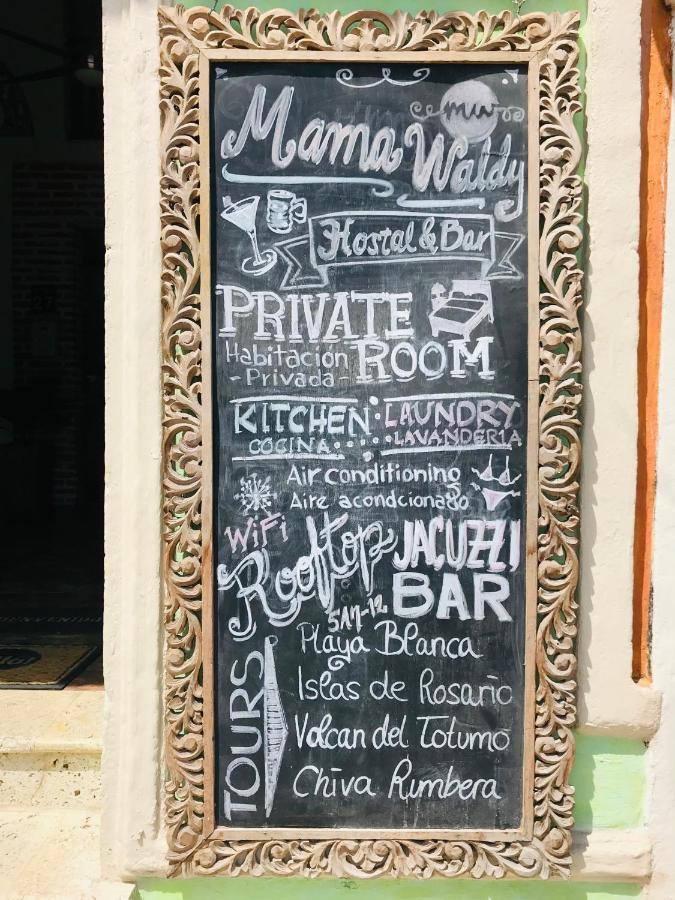 mw
Mama Waldy
Hostal & Bar
PRIVATE
Habitación ROOM
- Privada -
KITCHEN LAUNDRY
COCINA LAVANDERIA
Air conditioning
Aire acondcionado
WiFi
Rooftop JACUZZI
BAR
Playa Blanca
Islas de Rosario
Volcan del Totumo
Chiva Rumbera
TOURS
BIENVENIDO